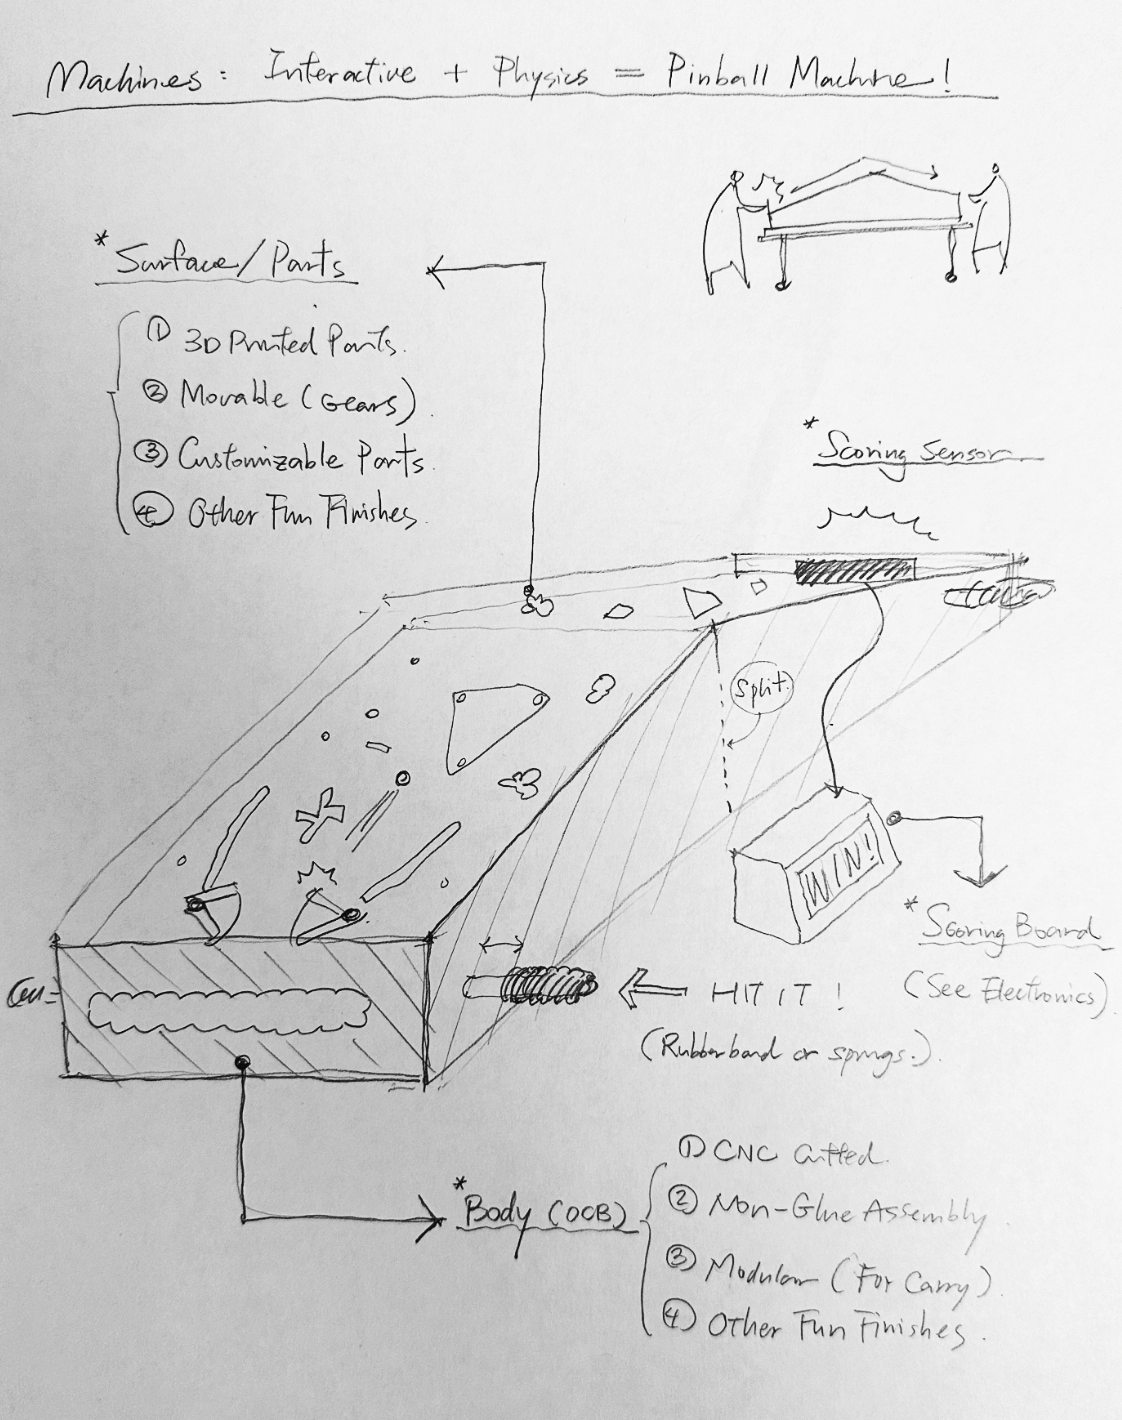 Machines: Interactive + Physics = Pinball Machine!
* Surface/Parts
① 3D Printed Parts.
② Movable (Gears).
③ Customizable Parts.
④ Other Fun Finishes.
* Scoring Sensor
Split.
WIN!
* Scoring Board
(See Electronics)
HIT IT !
(Rubberband or springs.).
* Body (OCB)
① CNC Cutted.
② Non-Glue Assembly.
③ Modular (For Carry)
④ Other Fun Finishes.